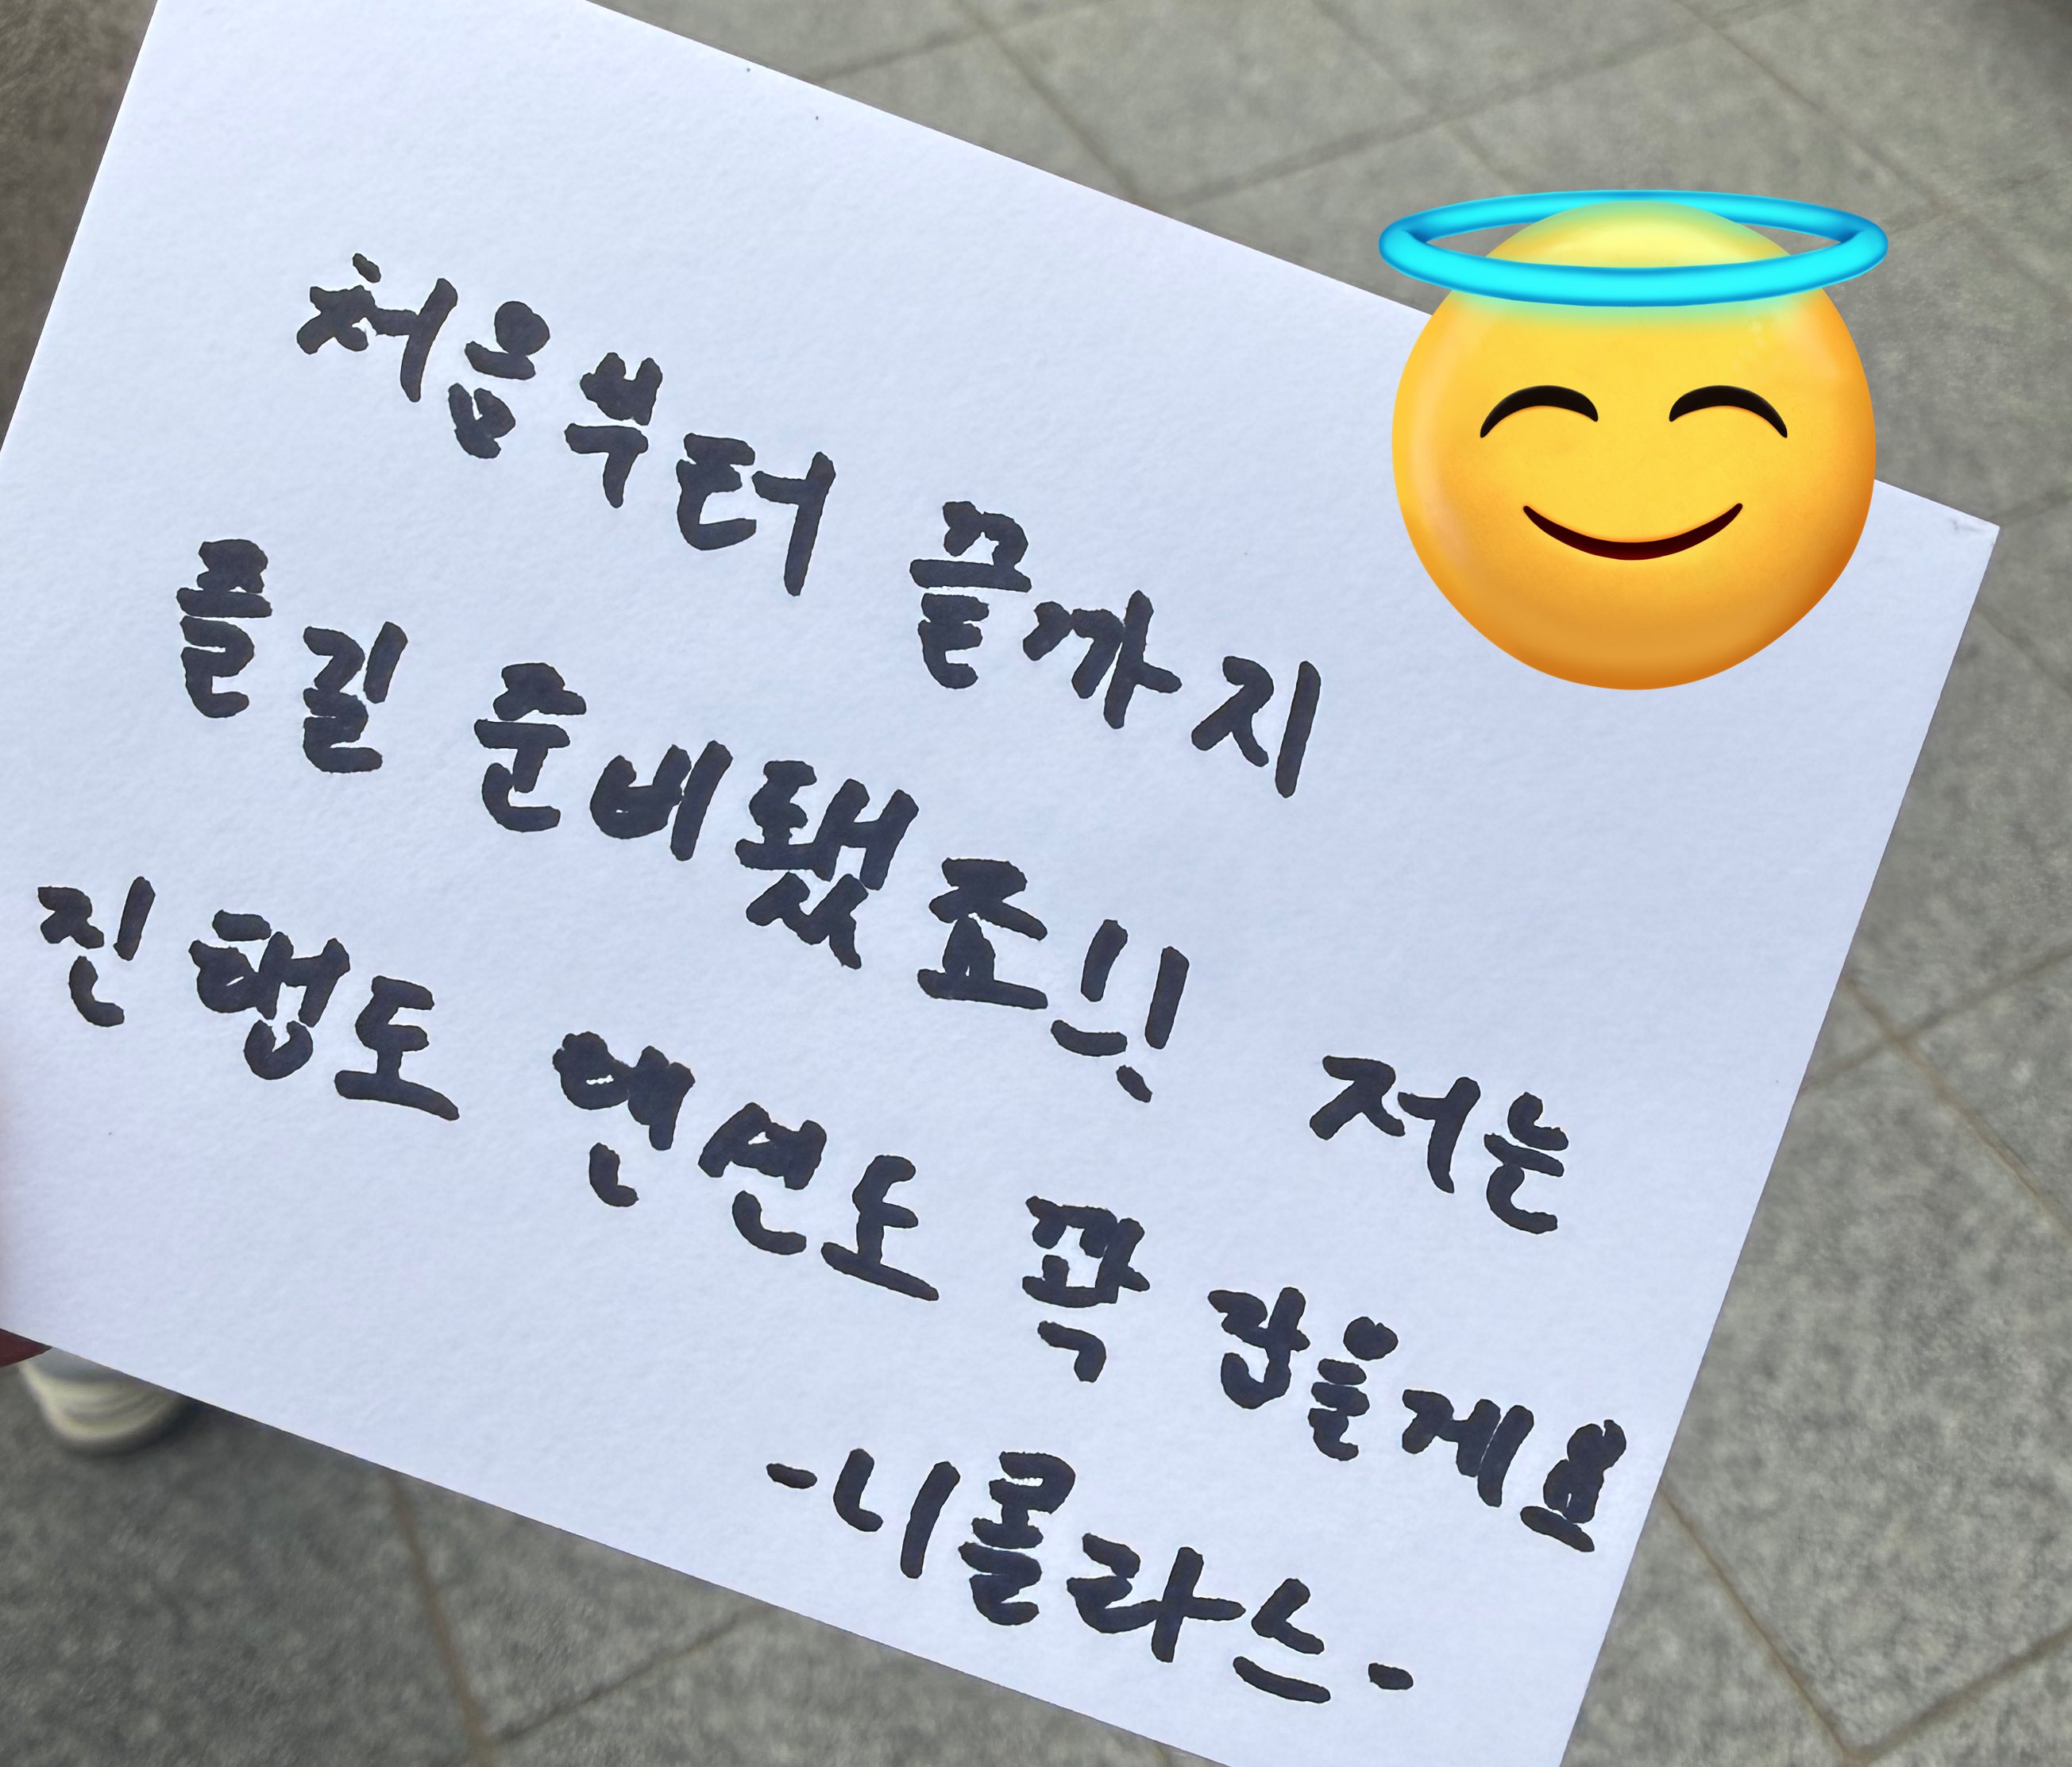 처음부터 끝까지
즐길 준비됐죠!! 저는
진행도 꽉 잡을게요
-니콜라스-